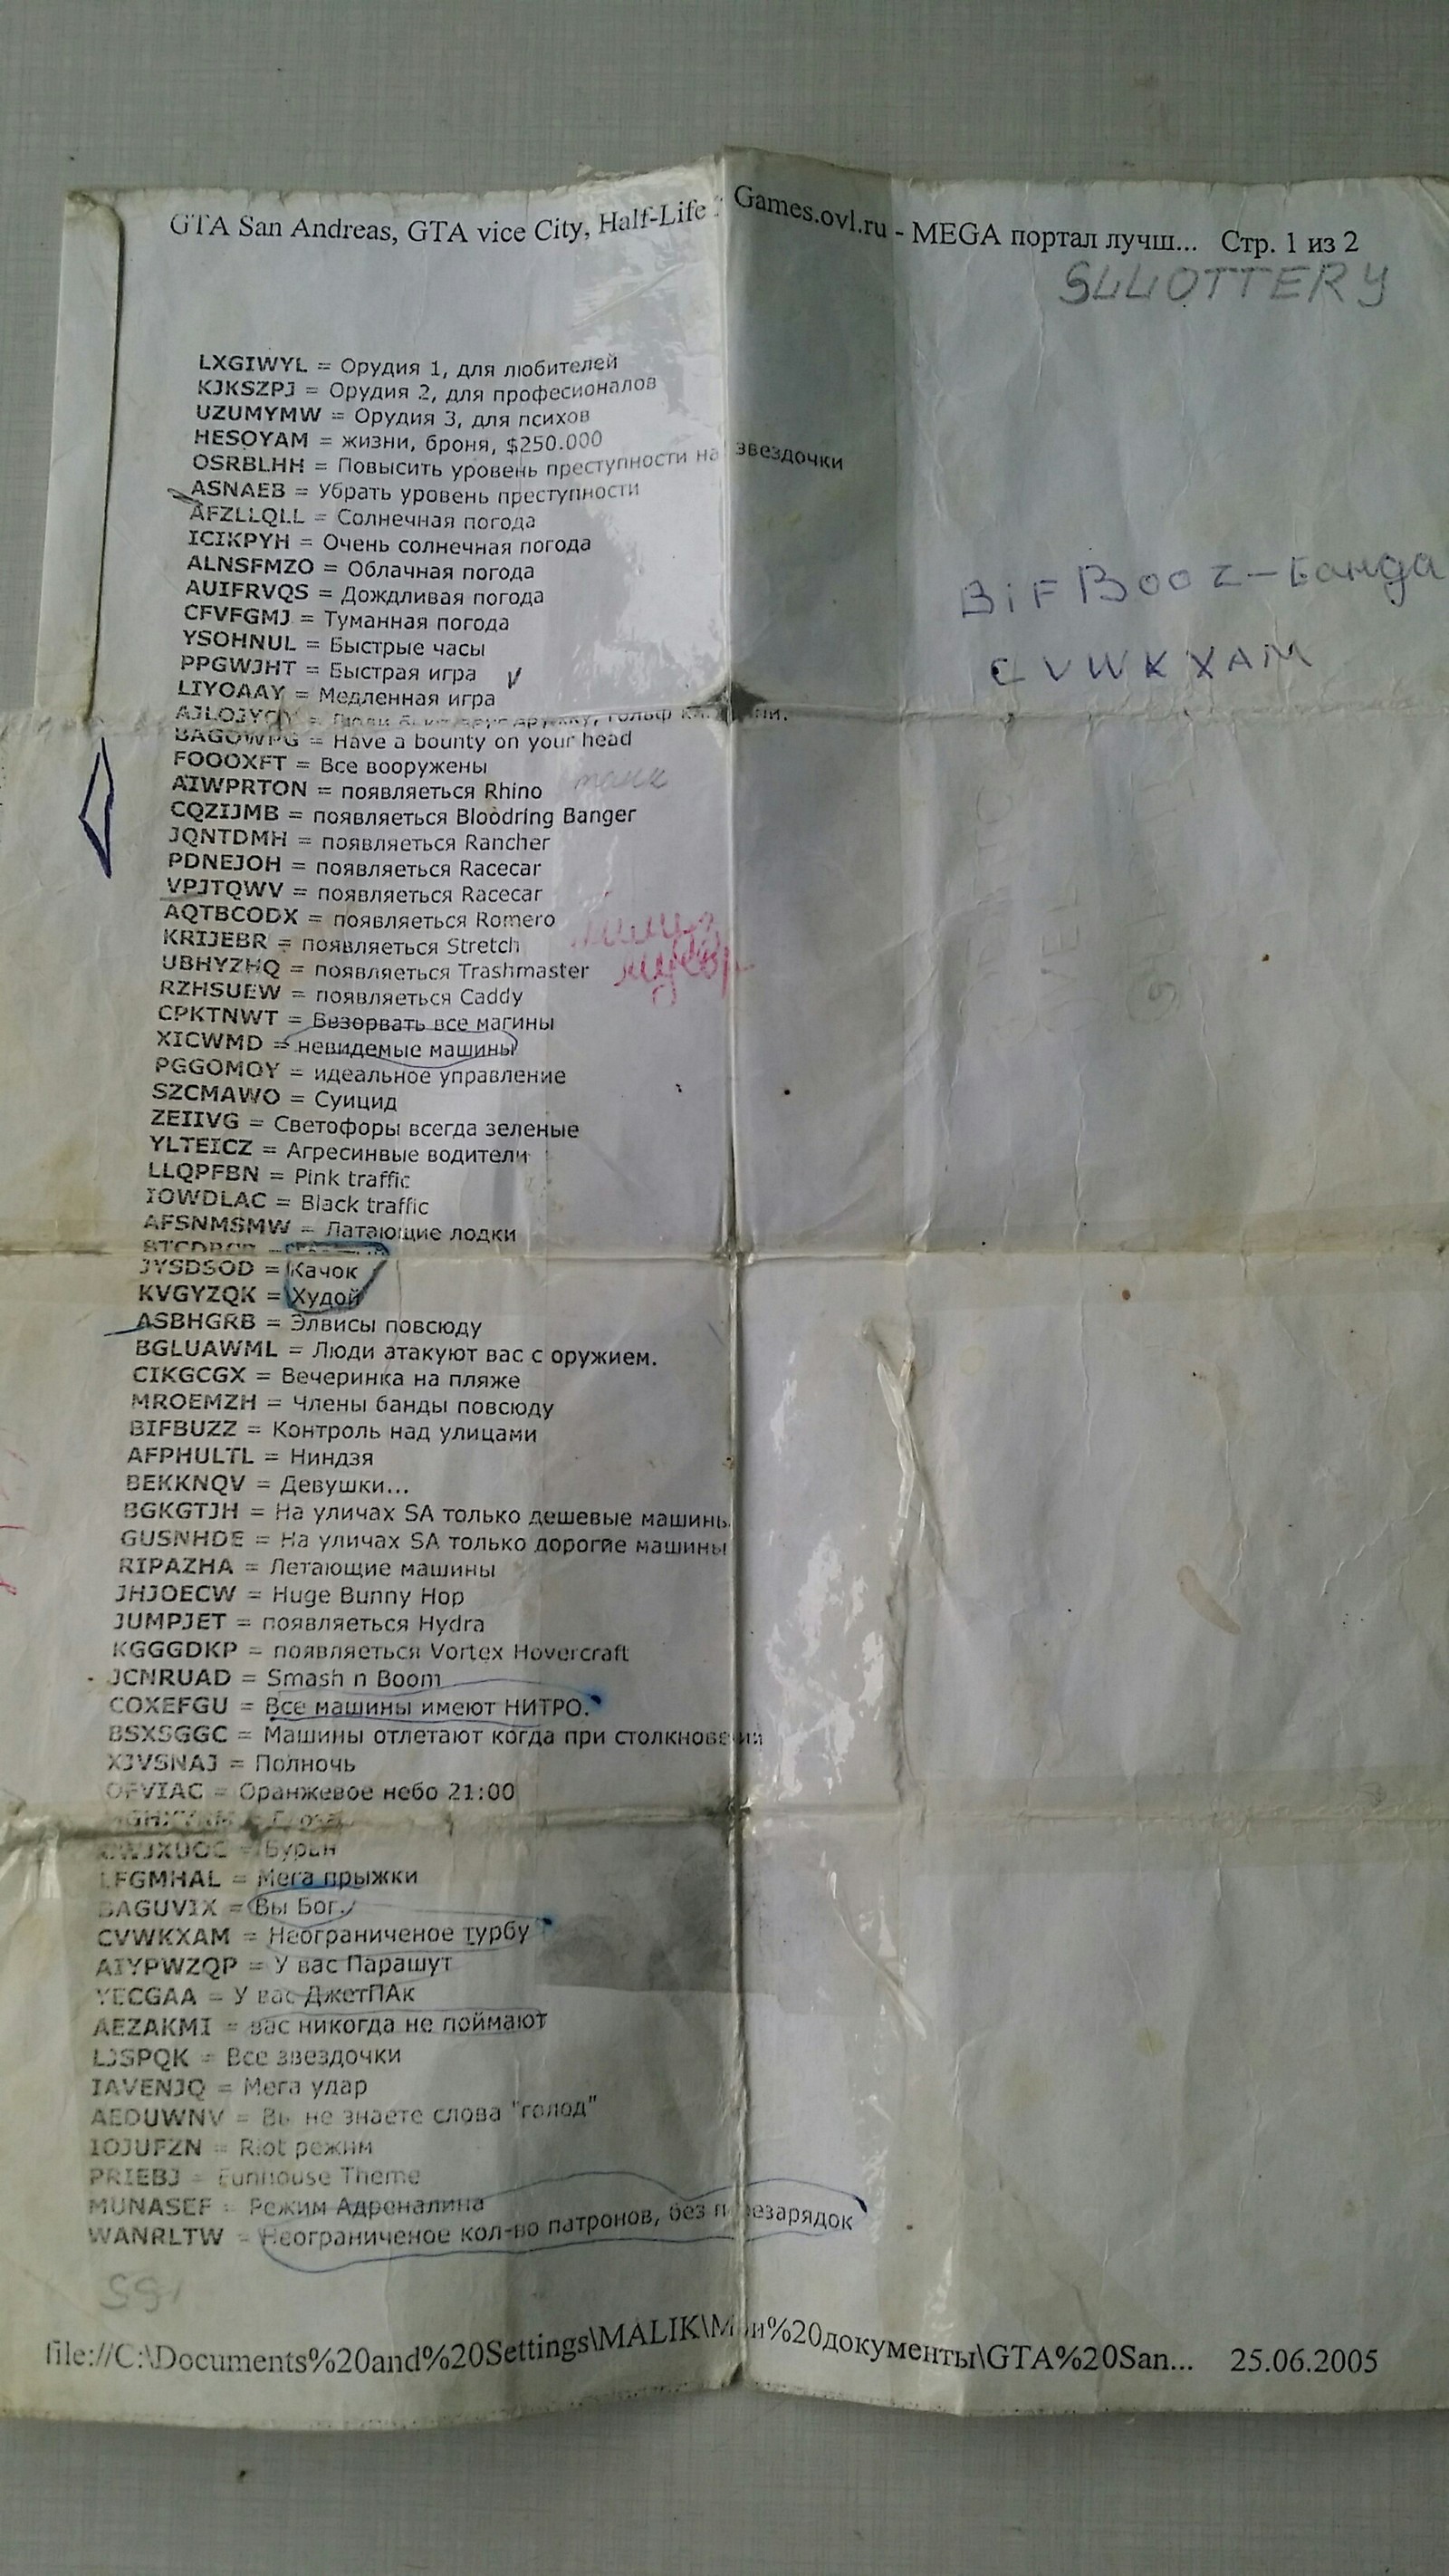 GTA San Andreas, GTA vice City, Half-Life Games.ovl.ru - MEGA портал лучш... Стр. 1 из 2
SLLLOTTERY
LXGIWYL = Орудия 1, для любителей
KJKSZPJ = Орудия 2, для професионалов
UZUMYMW = Орудия 3, для психов
HESOYAM = жизни, броня, $250.000
OSRBLHH = Повысить уровень преступности на звездочки
ASNAEB = Убрать уровень преступности
AFZLLQLL = Солнечная погода
ICIKPYH = Очень солнечная погода
ALNSFMZO = Облачная погода
BiFBooz-Банда
AUIFRVQS = Дождливая погода
CFVFGMJ = Туманная погода
YSOHNUL = Быстрые часы
CVWKXAM
PPGWJHT = Быстрая игра
LIYOAAY = Медленная игра
AJLOJYQY = гольф
BAGOWPG = Have a bounty on your head
FOOOXFT = Все вооружены
AIWPRTON = появляеться Rhino танк
CQZIJMB = появляеться Bloodring Banger
JQNTDMH = появляеться Rancher
PDNEJOH = появляеться Racecar
VPJTQWV = появляеться Racecar
AQTBCODX = появляеться Romero
KRIJEBR = появляеться Stretch
UBHYZHQ = появляеться Trashmaster
RZHSUEW = появляеться Caddy
CPKTNWT = Взорвать все магины
XICWMD = невидемые машины
PGGOMOY = идеальное управление
SZCMAWO = Суицид
ZEIIVG = Светофоры всегда зеленые
YLTEICZ = Агресинвые водители
LLQPFBN = Pink traffic
IOWDLAC = Black traffic
AFSNMSMW = Латающие лодки
JYSDSOD = Качок
KVGYZQK = Худой
ASBHGRB = Элвисы повсюду
BGLUAWML = Люди атакуют вас с оружием.
CIKGCGX = Вечеринка на пляже
MROEMZH = Члены банды повсюду
BIFBUZZ = Контроль над улицами
AFPHULTL = Ниндзя
BEKKNQV = Девушки...
BGKGTJH = На уличах SA только дешевые машины
GUSNHDE = На уличах SA только дорогие машины
RIPAZHA = Летающие машины
JHJOECW = Huge Bunny Hop
JUMPJET = появляеться Hydra
KGGGDKP = появляеться Vortex Hovercraft
JCNRUAD = Smash n Boom
COXEFGU = Все машины имеют НИТРО.
BSXSGGC = Машины отлетают когда при столкновении
XJVSNAJ = Полночь
OFVIAC = Оранжевое небо 21:00
CWJXUOC = Бурын
LFGMHAL = Мега прыжки
BAGUVIX = Вы Бог.
CVWKXAM = Неограниченое турбу
AIYPWZQP = У вас Парашут
YECGAA = У вас ДжетПАк
AEZAKMI = вас никогда не поймают
LJSPQK = Все звездочки
IAVENJQ = Мега удар
AEDUWNV = Вы не знаете слова "голод"
IOJUFZN = Riot режим
PRIEBJ = Funhouse Theme
MUNASEF = Режим Адреналина
WANRLTW = Неограниченое кол-во патронов, без перезарядок
file://C:\Documents%20and%20Settings\MALIK\Мои%20документы\GTA%20San... 25.06.2005